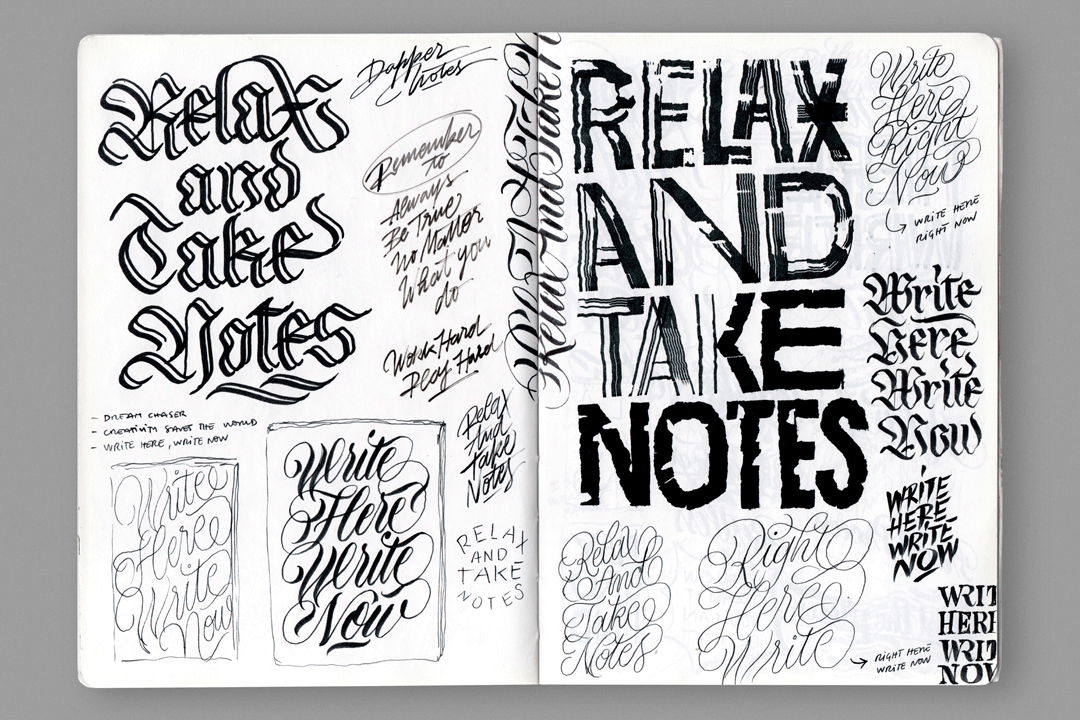 Relax
and
Take
Notes
Dapper
Notes
Remember
to
Always
Be True
No Matter
What you
do
Work Hard
Play Hard
- DREAM CHASER
- CREATIVITY SAVES THE WORLD
- WRITE HERE, WRITE NOW
Write
Here
Write
Now
Write
Here
Write
Now
Relax
And
Take
Notes
RELAX
AND
TAKE
NOTES
Relax And Take N
RELAX
AND
TAKE
NOTES
Write
Here
Right
Now
WRITE HERE
RIGHT NOW
Write
Here
Write
Now
WRITE
HERE
WRITE
NOW
Relax
And
Take
Notes
Right
Here
Write
RIGHT HERE
WRITE NOW
WRIT
HERE
WRIT
NOW